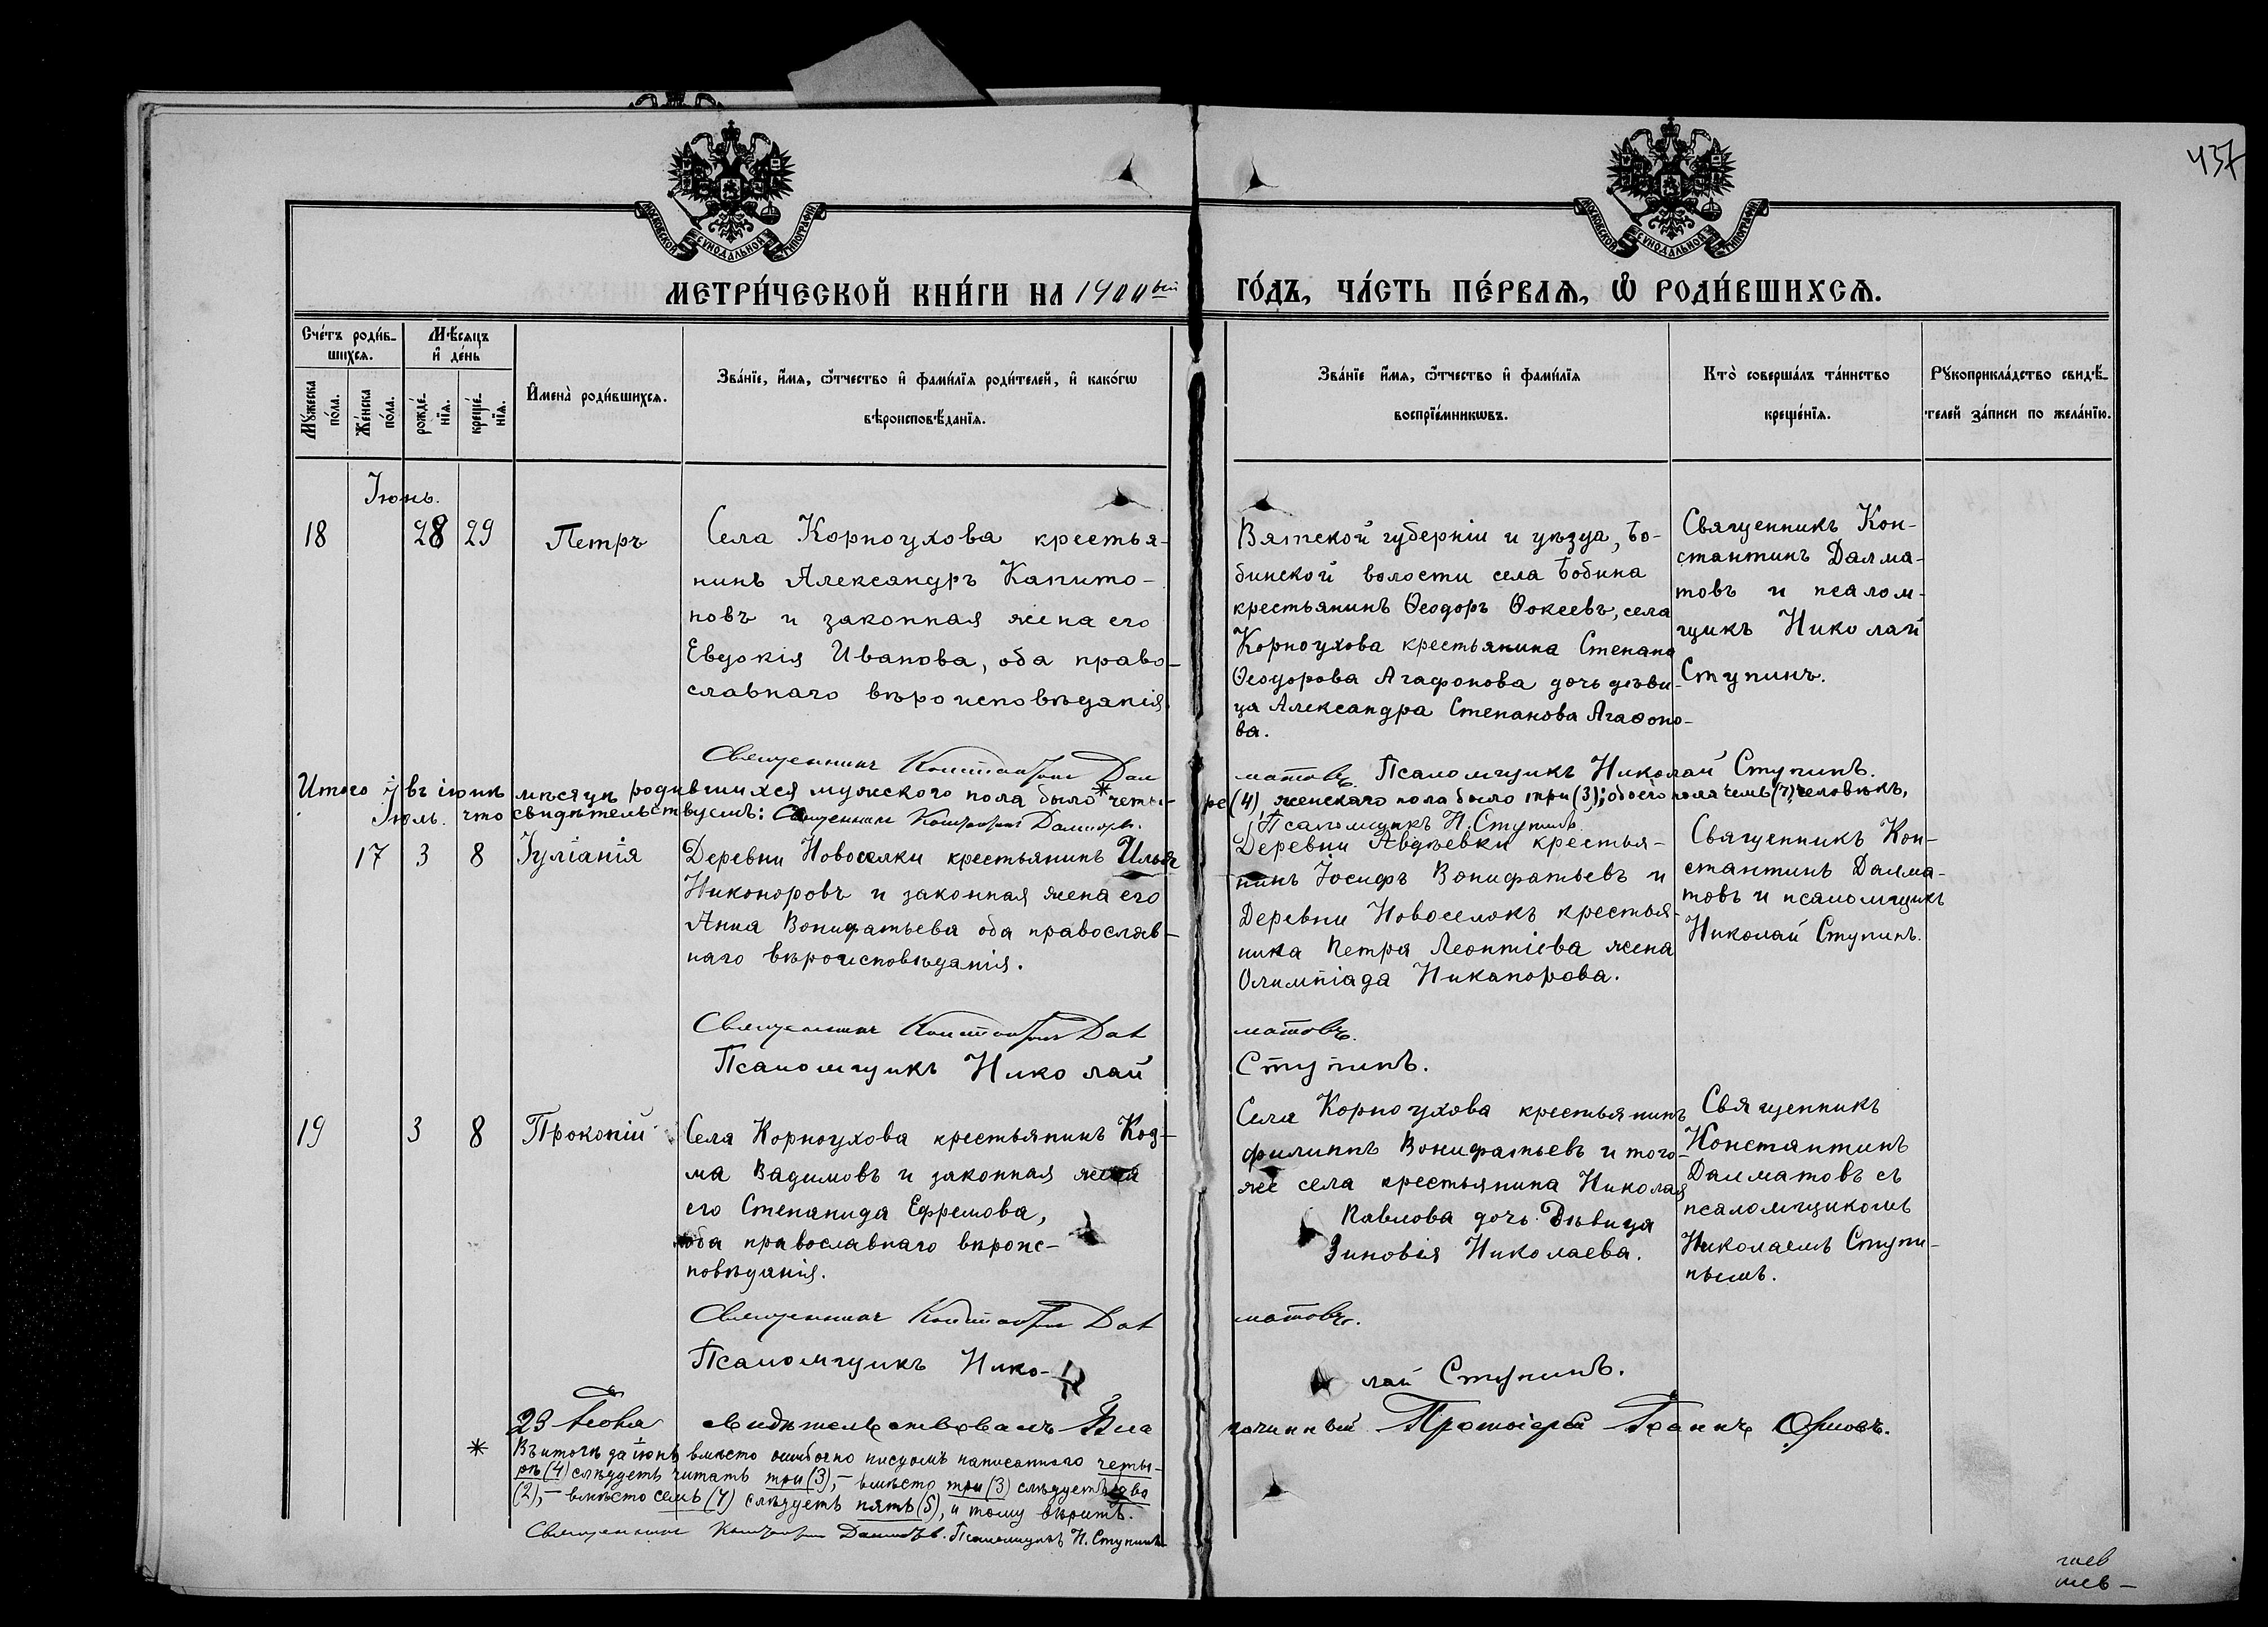 437
МОСКОВСКОЙ СѴНОДАЛЬНОЙ ТИПОГРАФІИ
МОСКОВСКОЙ СѴНОДАЛЬНОЙ ТИПОГРАФІИ
МЕТРИ́ЧЕСКОЙ КНИ́ГИ НА 1900ый ГО́ДЪ, ЧА́СТЬ ПЕ́РВАѦ, Ѡ РОДИ́ВШИХСѦ.
Сче́тъ роди́в-
шихсѧ.
Мѣ́сѧцъ
и҆ де́нь
Мꙋ́жеска
по́ла.
Же́нска
по́ла.
рожде́-
нїѧ.
креще́-
нїѧ.
И҆мена̀ роди́вшихсѧ.
Зва́нїе, и҆́мѧ, ѻ҆́тчество и҆ фами́лїѧ роди́телей, и҆ како́гѡ
вѣроисповѣ́данїѧ.
Зва́нїе и҆́мѧ, ѻ҆́тчество и҆ фами́лїѧ
воспрїе́мникѡвъ.
Кто̀ соверша́лъ та́инство
креще́нїѧ.
Рꙋкоприкла́дство свидѣ́-
телей за́писи по жела́нїю.
Іюнь.
18 28 29 Петръ
Села Корноухова крестья-
нинъ Александръ Капито-
новъ и законная жена его
Евдокія Иванова, оба право-
славнаго вѣроисповѣданія.
Вятской губерніи и уѣзда, Бо-
бинской волости села Бобина
крестьянинъ Ѳеодоръ Ѳокеевъ, села
Корноухова крестьянина Степана
Ѳеодорова Агафонова дочь дѣви-
ца Александра Степанова Агафоно-
ва.
Священникъ Кон-
стантинъ Далма-
товъ и псалом-
щикъ Николай
Ступинъ.
Священникъ Константинъ Дал матовъ. Псаломщикъ Николай Ступинъ.
Итого въ іюнѣ мѣсяцѣ родившихся мужского пола было * четы-
ре (4) женскаго пола было три (3); обоего пола семь (7) человѣкъ,
Іюль. что свидѣтельствуемъ: Священникъ Константинъ Далматовъ.
Псаломщикъ Н. Ступинъ.
17 3 8 Іуліанія
Деревни Новоселки крестьянинъ Илья
Никоноровъ и законная жена его
Анна Вонифатьева оба православ-
наго вѣроисповѣданія.
Деревни Авдѣевки крестья-
нинъ Іосифъ Вонифатьевъ и
Деревни Новоселокъ крестья-
нина Петра Леонтіева жена
Олимпіада Никанорова.
Священникъ Кон-
стантинъ Далма-
товъ и псаломщикъ
Николай Ступинъ.
Священникъ Константинъ Дал матовъ.
Псаломщикъ Николай Ступинъ.
19 3 8 Прокопій
Села Корноухова крестьянинъ Коз-
ма Вадимовъ и законная жена
его Степанида Ефремова,
оба православнаго вѣроис-
повѣданія.
Села Корноухова крестьянинъ
Филиппъ Вонифатьевъ и того-
же села крестьянина Николая
Павлова дочь дѣвица
Зиновія Николаева.
Священникъ
Константинъ
Далматовъ съ
псаломщикомъ
Николаемъ Ступи-
нымъ.
Священникъ Константинъ Дал матовъ.
Псаломщикъ Нико- лай Ступинъ.
23 свидѣтельствовалъ Бла гочинный Протоіерей Іоаннъ Орловъ.
* Въ итогѣ за іюнь вмѣсто ошибочно писцомъ написаннаго четы-
ре (4) слѣдуетъ читать три (3), - вмѣсто три (3) слѣдуетъ два
(2), - вмѣсто семь (7) слѣдуетъ пять (5), и тому вѣрить.
Священникъ Константинъ Далматовъ. Псаломщикъ Н. Ступинъ.